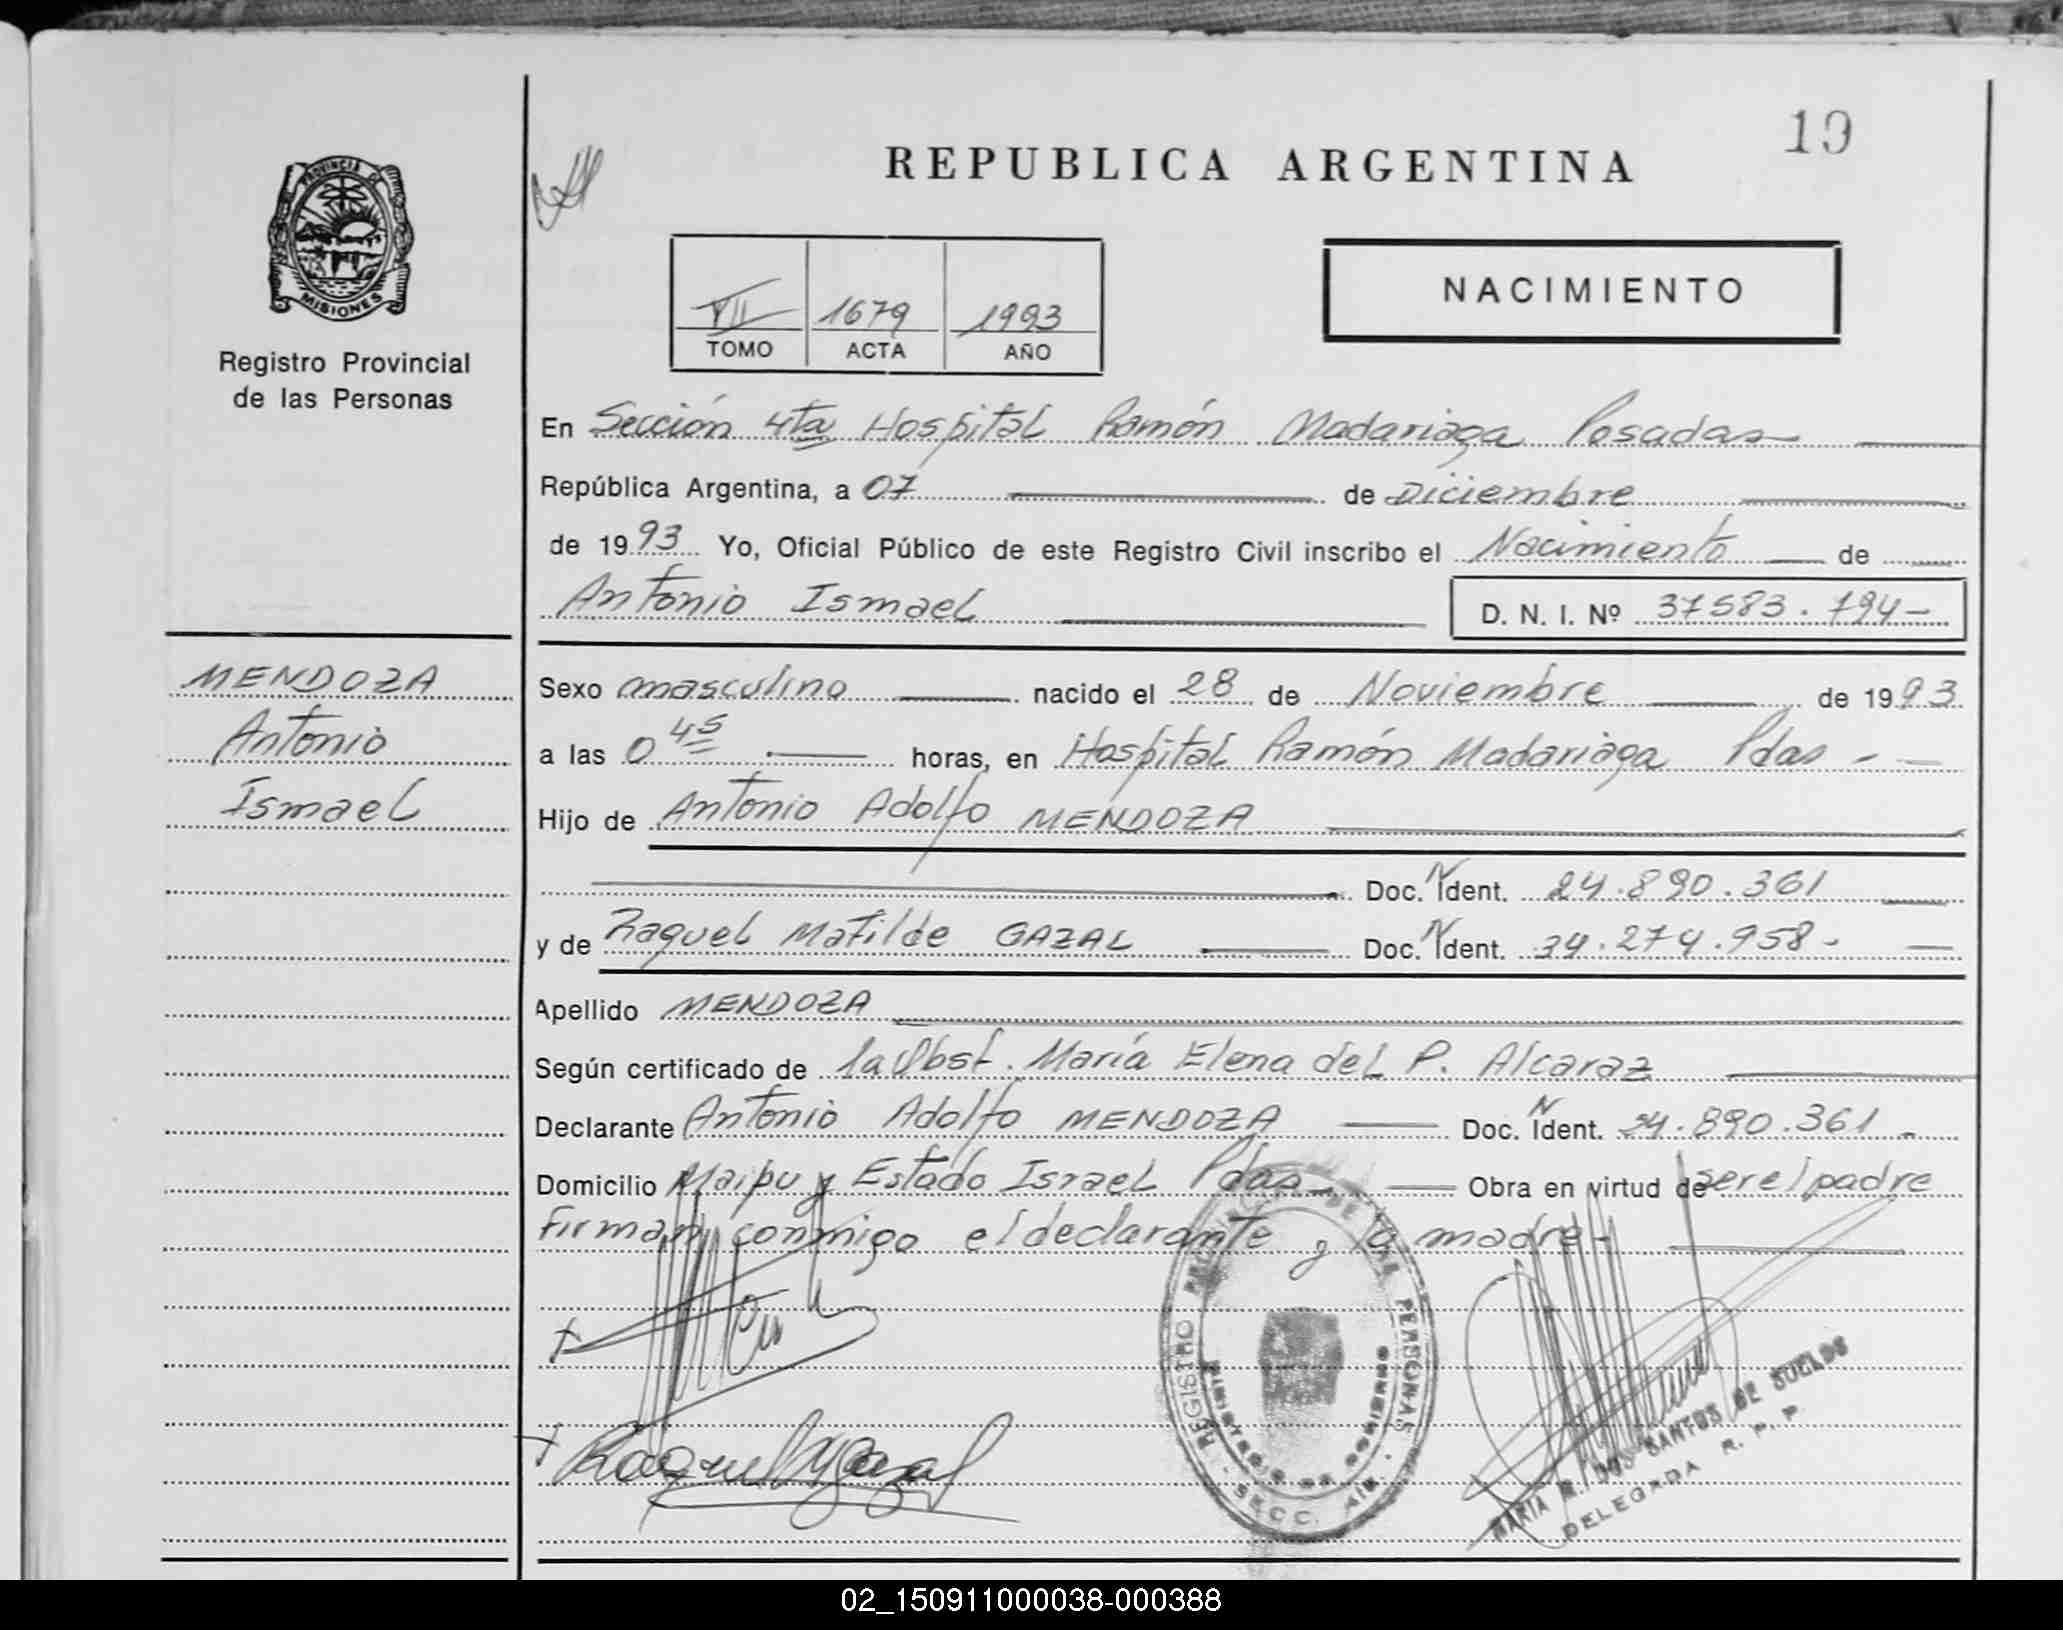 19
REPUBLICA ARGENTINA
PROVINCIA DE
MISIONES
Registro Provincial
de las Personas
VII 1679 1993
TOMO ACTA AÑO
NACIMIENTO
En Sección 4ta Hospital Ramón Madariaga Posadas
República Argentina, a 07 de Diciembre
de 1993 Yo, Oficial Público de este Registro Civil inscribo el Nacimiento de
Antonio Ismael D. N. I. Nº 37583.794-
MENDOZA
Antonio
Ismael
Sexo masculino nacido el 28 de Noviembre de 1993
a las 0 45 horas, en Hospital Ramón Madariaga Pdas -
Hijo de Antonio Adolfo MENDOZA
Doc. N Ident. 24.890.361
y de Raquel Matilde GAZAL Doc. N Ident. 34.274.958-
Apellido MENDOZA
Según certificado de la Obst. María Elena del P. Alcaraz
Declarante Antonio Adolfo MENDOZA Doc. N Ident. 24.890.361-
Domicilio Maipu y Estado Israel Pdas Obra en virtud de ser el padre
firman conmigo el declarante y la madre-
REGISTRO PROVINCIAL DE LAS PERSONAS
SECC.
MARIA R. DOS SANTOS DE SUELDS
DELEGADA R. P. P.
02_150911000038-000388